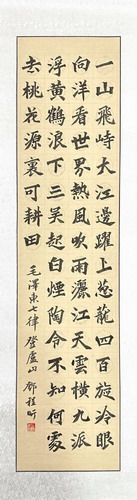 一山飛峙大江邊躍上葱蘢四百旋冷眼
向洋看世界熱風吹雨灑江天雲橫九派
浮黃鶴浪下三吳起白煙陶令不知何處
去桃花源裏可耕田
毛澤東七律登廬山鄧程昕